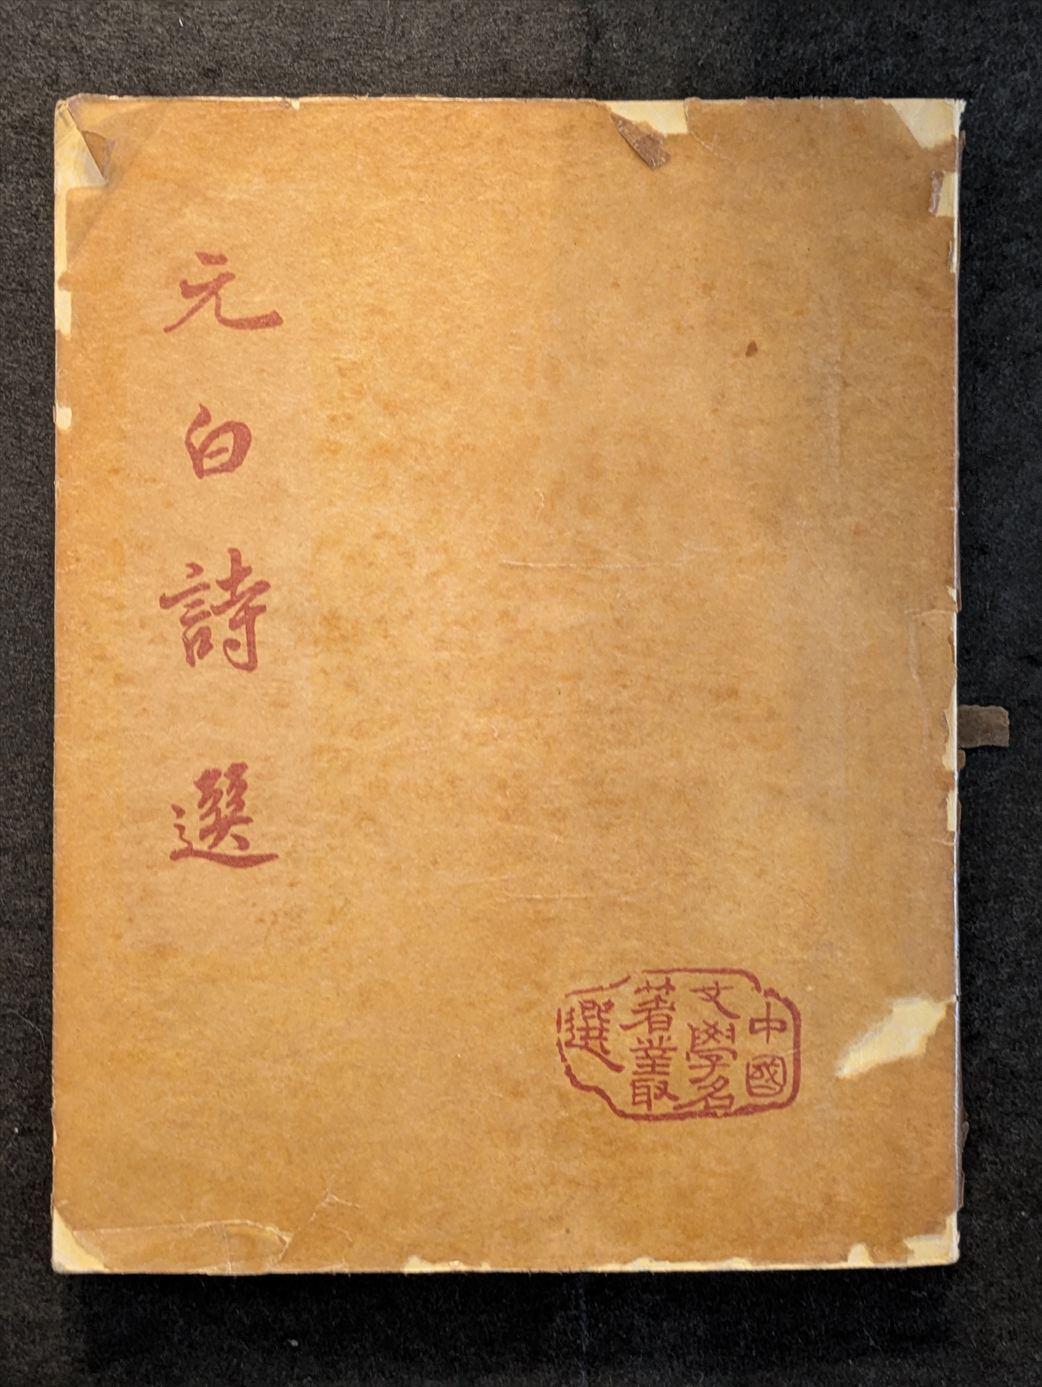 元白詩選
中國
文學名
著叢
選